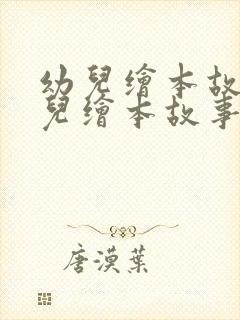 幼兒繪本故
兒繪本故事
唐漠葉